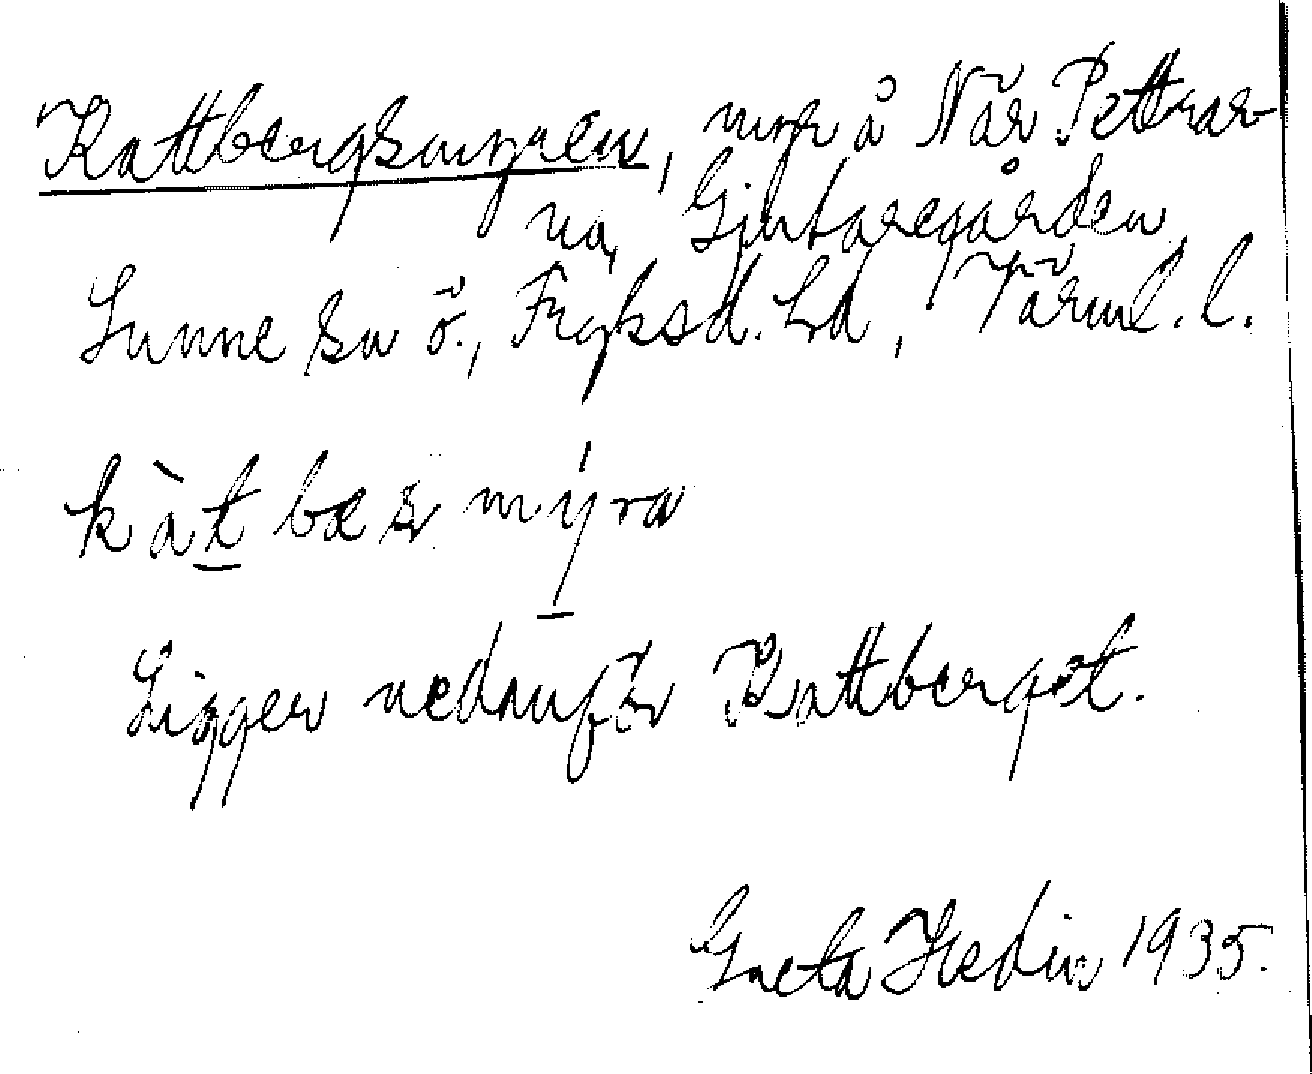 Kattbergsmyren, myr å När Pettrar-
na, Gjutaregården
Sunne sn ö., Fryksd. hd, Värml. l.
kàt bær mýra
Ligger nedanför Kattberget.
Greta Hedin 1935.